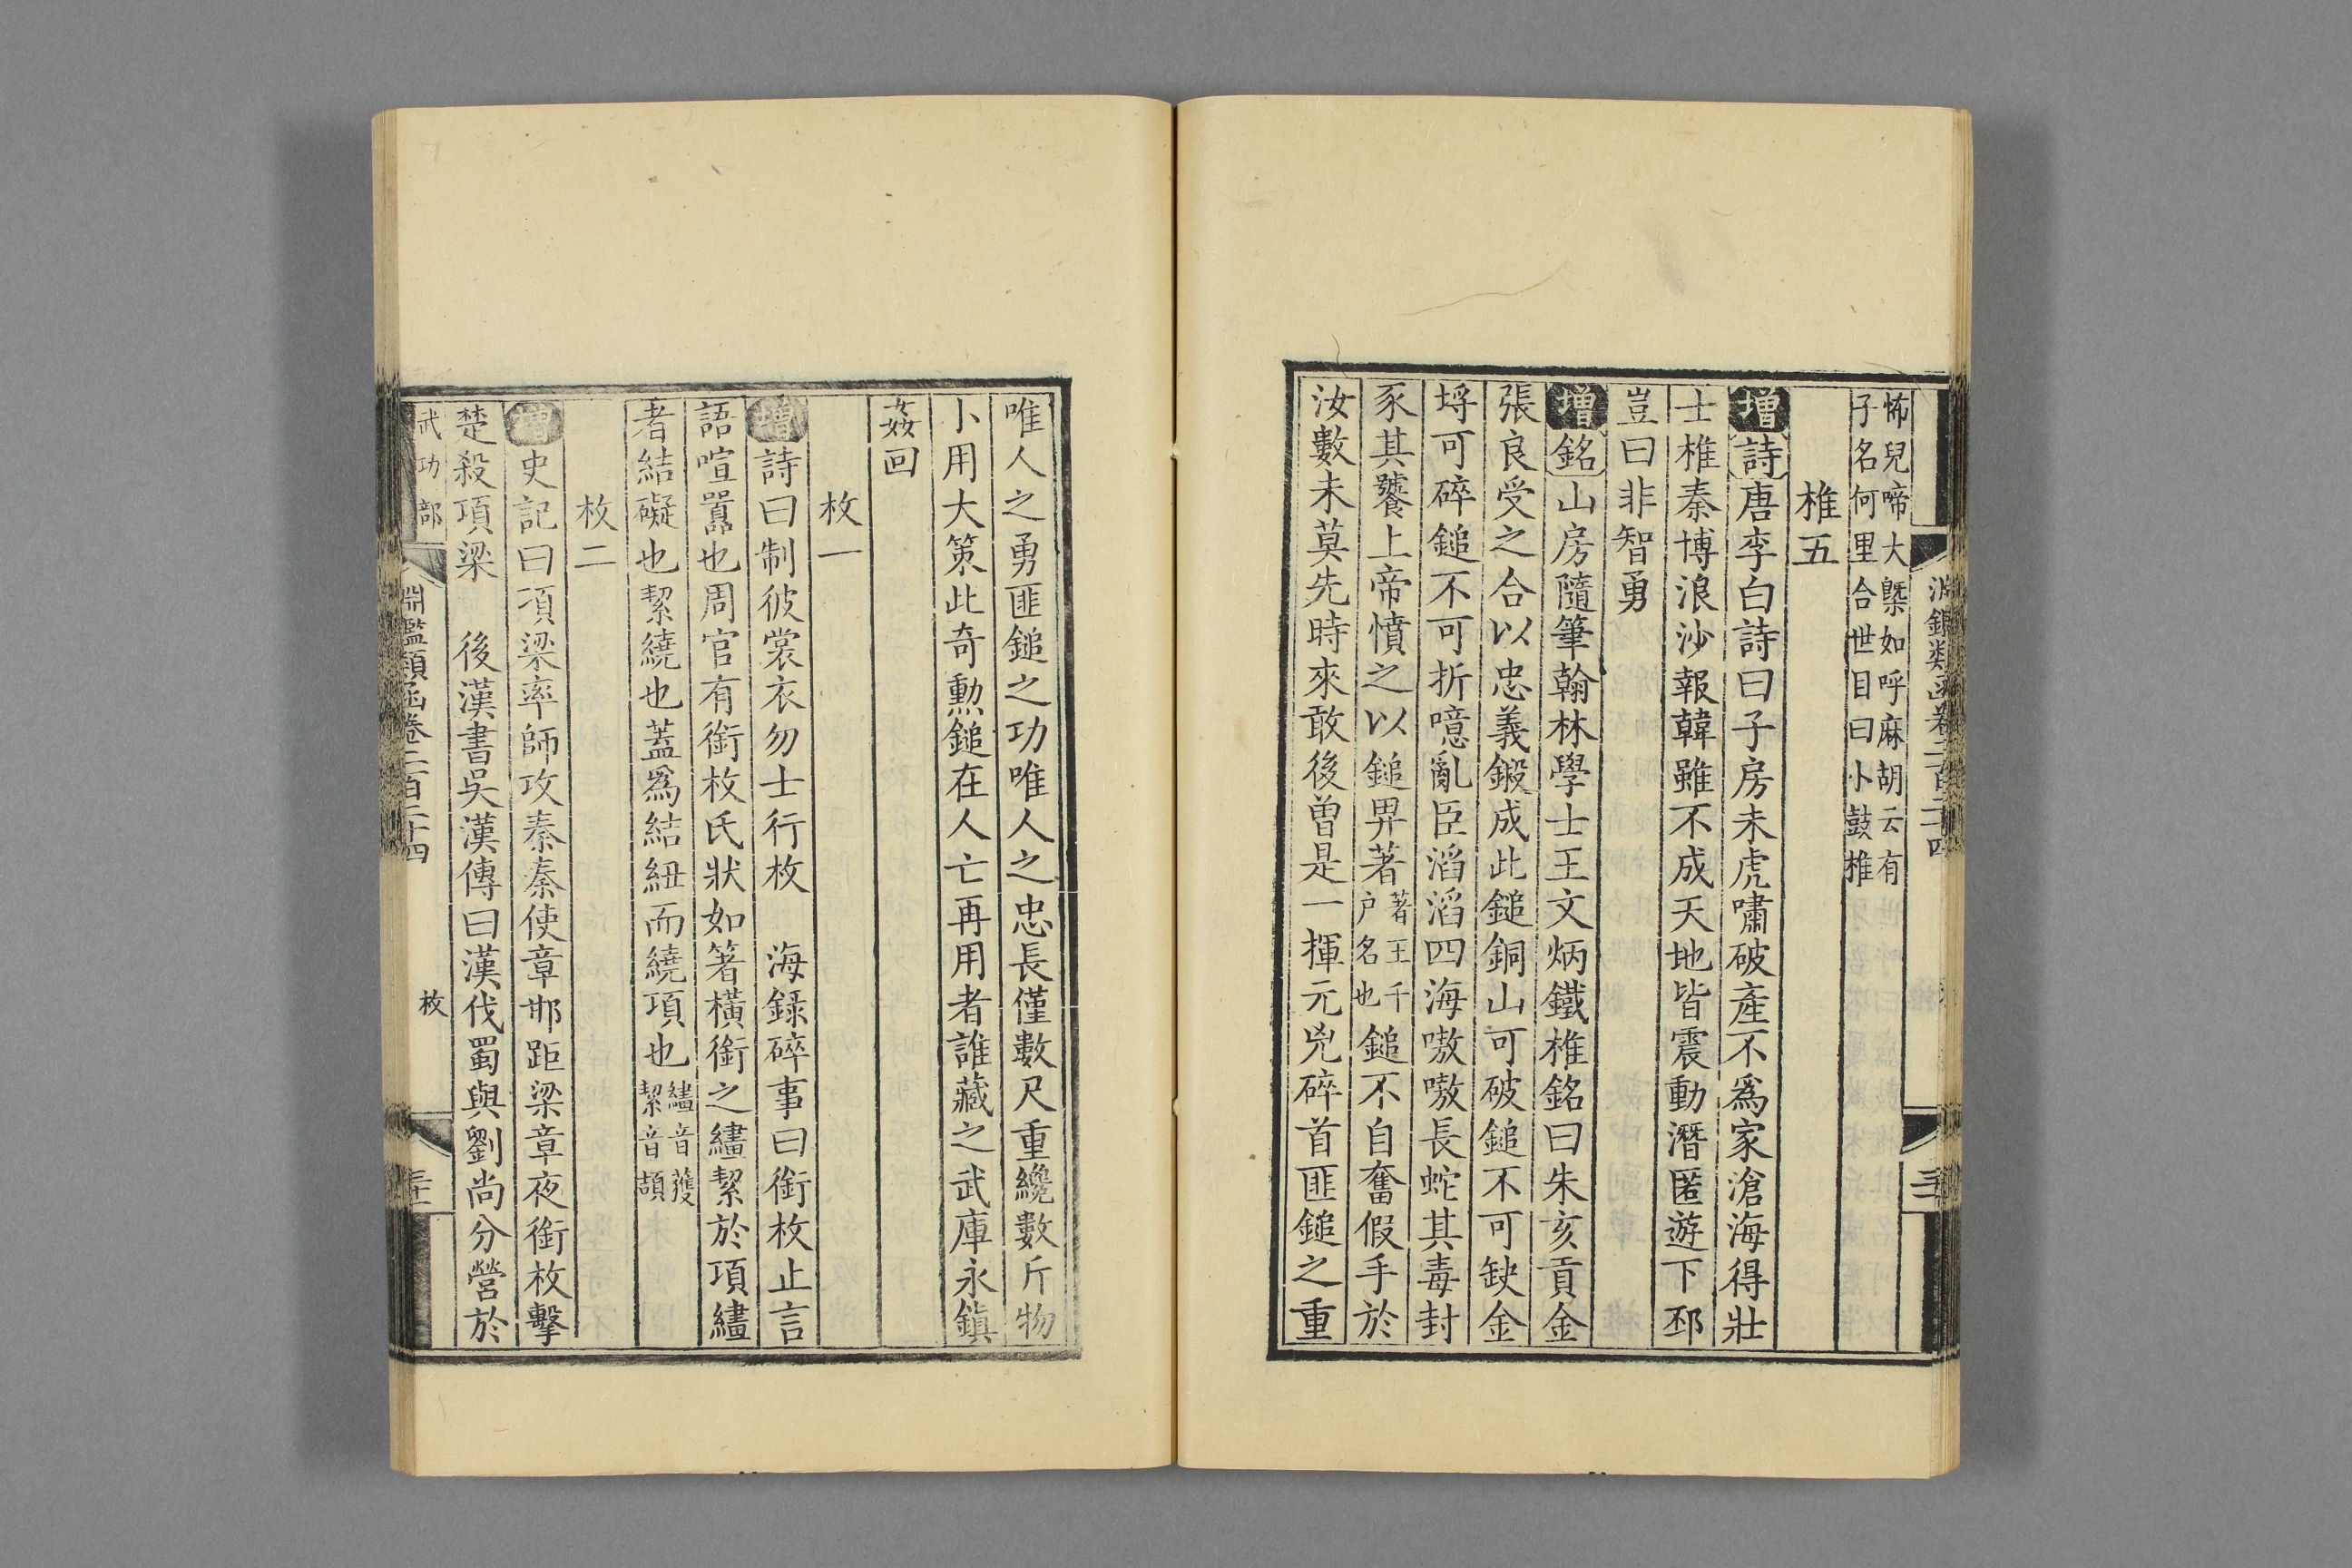 怖兒啼大槩如呼麻胡云有
子名何里合世目曰小鼓椎
椎五
增詩唐李白詩曰子房未虎嘯破產不爲家滄海得壯
士椎秦博浪沙報韓雖不成天地皆震動潛匿遊下邳
豈曰非智勇
增銘山房隨筆翰林學士王文炳鐵椎銘曰朱亥貢金
張良受之合以忠義鍛成此鎚銅山可破鎚不可缺金
埒可碎鎚不可折噫亂臣滔滔四海嗷嗷長蛇其毒封
豕其饕上帝憤之以鎚畀著著王千戶名也鎚不自奮假手於
汝數未莫先時來敢後曾是一揮元兇碎首匪鎚之重
唯人之勇匪鎚之功唯人之忠長僅數尺重纔數斤物
小用大策此奇勲鎚在人亡再用者誰藏之武庫永鎮
姦回
枚一
增詩曰制彼裳衣勿士行枚　海錄碎事曰銜枚止言
語喧囂也周官有銜枚氏狀如箸橫銜之繣絜於項繣
者結礙也絜繞也蓋爲結紐而繞項也繣音獲絜音頡
枚二
增史記曰項梁率師攻秦秦使章邯距梁章夜銜枚擊
楚殺項梁　後漢書吳漢傳曰漢伐蜀與劉尚分營於
武功部
淵鑑類函卷二百二十四
枚